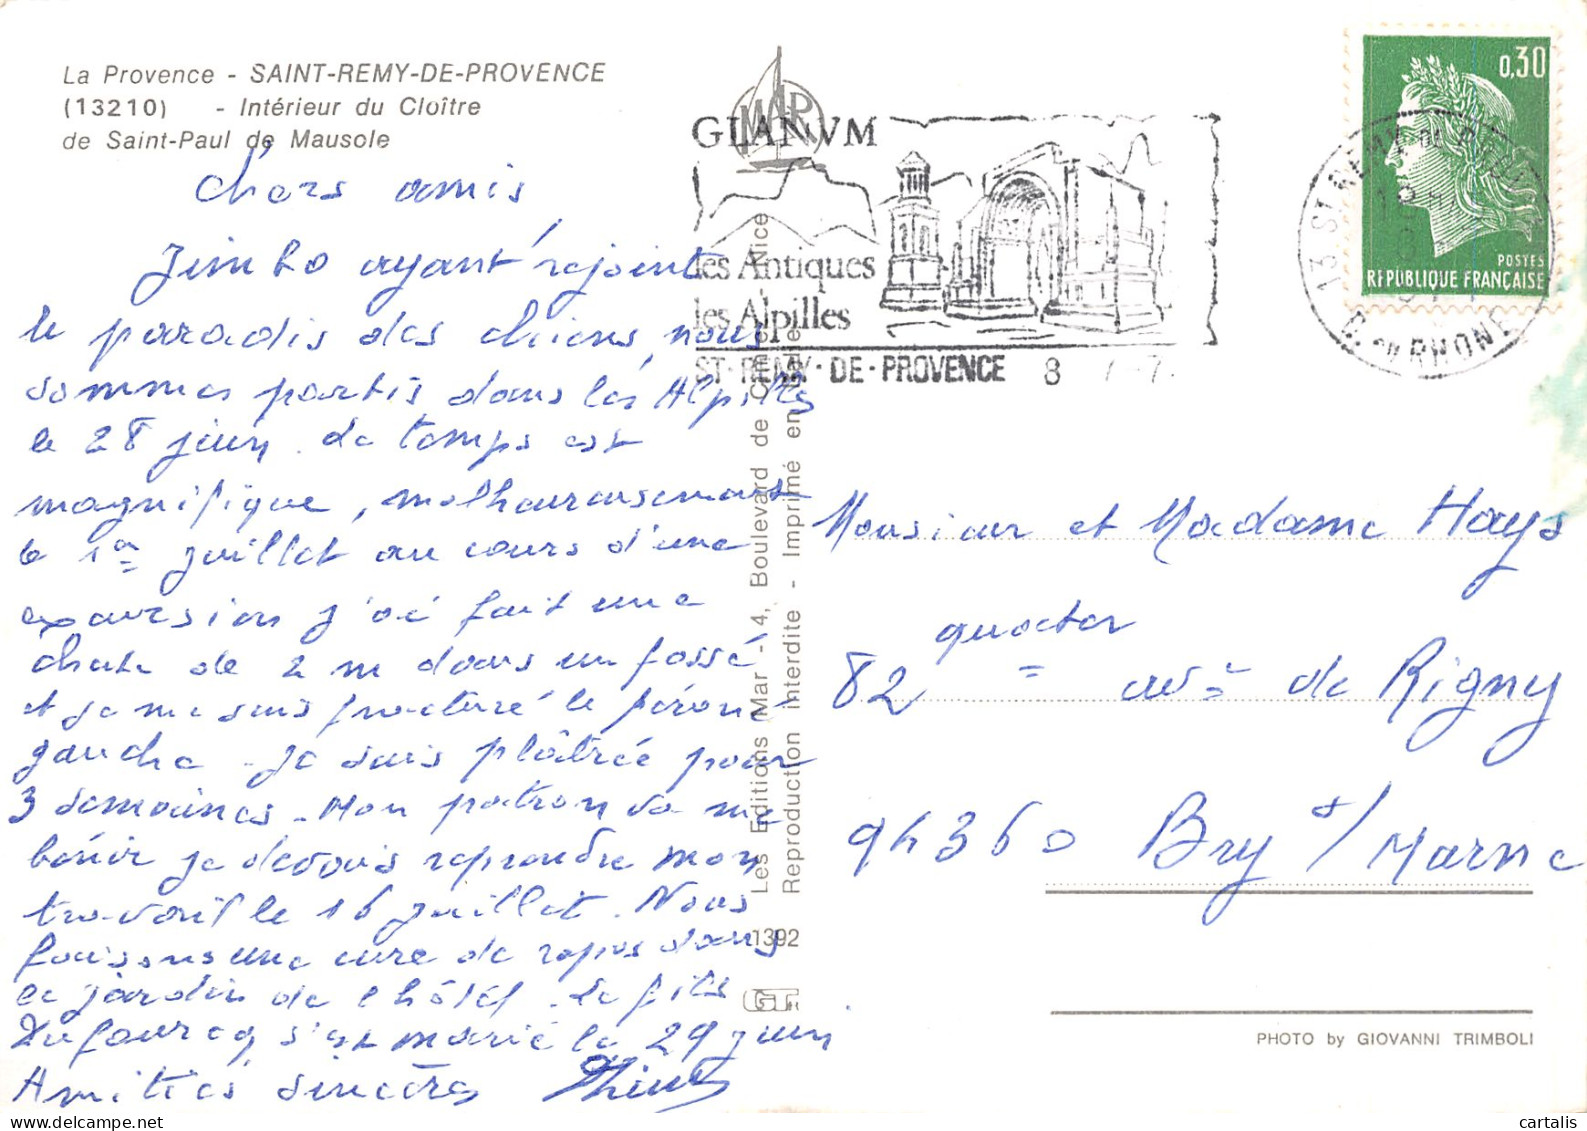 La Provence - SAINT-REMY-DE-PROVENCE
(13210) - Intérieur du Cloître
de Saint-Paul de Mausole
Chers amis
Jimbo ayant rejoint
le paradis des chiens, nous
sommes partis dans les Alpilles
le 28 juin. Le temps est
magnifique, malheureusement
le 1er juillet au cours d'une
excursion j'ai fait une
chute de 2 m dans un fossé
et je me suis fracturé le péroné
gauche. Je suis plâtrée pour
3 semaines. Mon patron va me
bénir je devais reprendre mon
travail le 16 juillet. Nous
faisons une cure de repos dans
le jardin de l'hôtel. Le fils
Dufourcq s'est marié le 29 juin.
Amitiés sincères
MAR
GLANVM
les Antiques
les Alpilles
ST-REMY-DE-PROVENCE 8 7-7.
Les Editions Mar - 4, Boulevard de Cimiez - Nice
Reproduction interdite - Imprimé en Italie
1392
GT
0,30
POSTES
REPUBLIQUE FRANÇAISE
13 ST REMY DE PROVENCE
B. DU RHONE
Monsieur et Madame Hays
82 quater ave de Rigny
94360 Bry s/ Marne
PHOTO by GIOVANNI TRIMBOLI
cartalis
www.delcampe.net